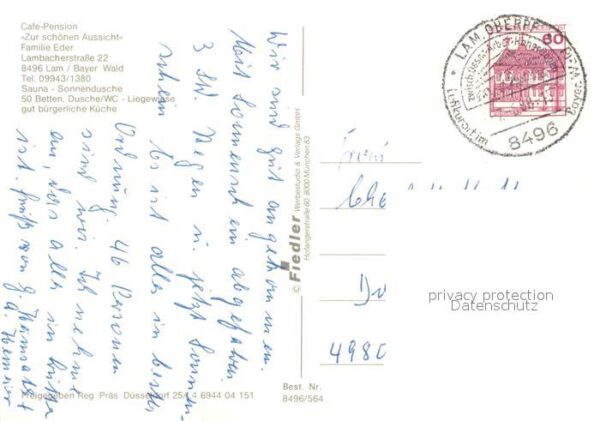 Cafe-Pension
»Zur schönen Aussicht«
Familie Eder
Lambacherstraße 22
8496 Lam / Bayer Wald
Tel. 09943/1380
Sauna - Sonnendusche
50 Betten, Dusche/WC - Liegewiese
gut bürgerliche Küche
Wir sind gut angekommen.
Mit Sonnenschein abgefahren
3 Std. Regen u. jetzt Sonnen-
schein Es ist alles in bester
Ordnung. 46 Personen
sind wir. Ich nehme
an, das alles in Ordn
ist. Gruß von
© Fiedler Werbestudio & Verlags GmbH
Hofangerstraße 60, 8000 München 83
60
LAM, OBERPF
8496
Luftkurort im Bayer.
Frau
4980
privacy protection
Datenschutz
Freigegeben Reg Präs Düsseldorf 25/1.4 6944 04 151
Best. Nr.
8496/564